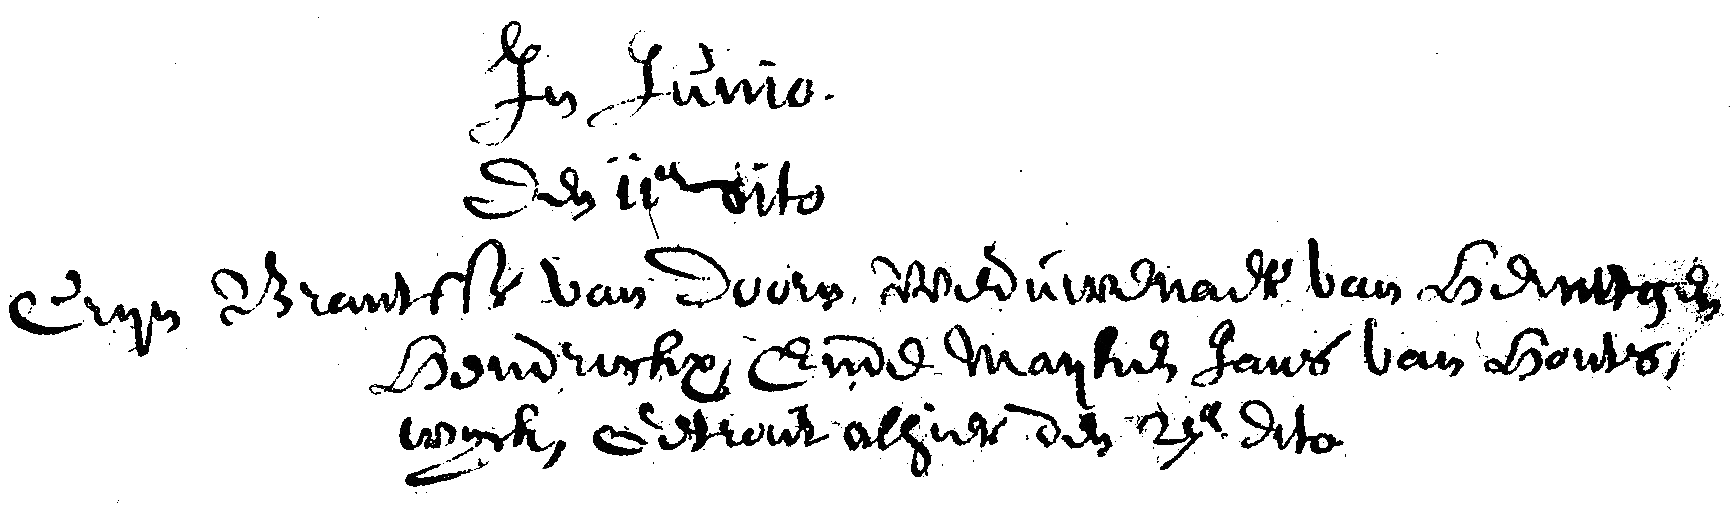 In Junio.
Den 11en dito
Cryn Brantsss van Doorn Weduwenaer van Henricxgen
Hendricks, Ende Mayken Jans van Houts,
wyck, Getrout alhier den 25en dito